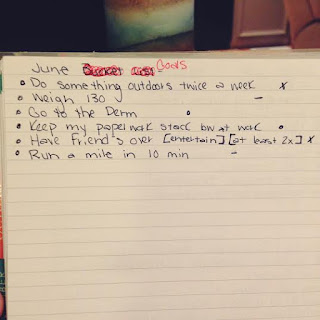 June Goals
• Do something outdoors twice a week x
• Weigh 130 –
• Go to the Derm •
• Keep my paperwork stack low at work •
• Have Friend's over [entertain] [at least 2x] x
• Run a mile in 10 min –